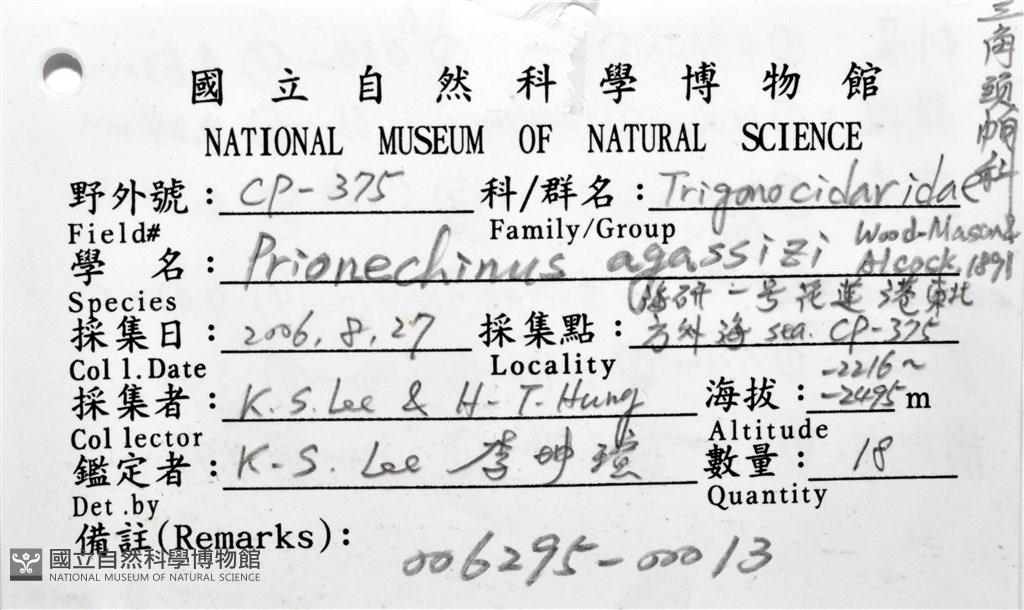 三角頭帕科
國立自然科學博物館
NATIONAL MUSEUM OF NATURAL SCIENCE
野外號：CP-375 科/群名：Trigonocidaridae
Field# Family/Group
學 名：Prionechinus agassizi Wood-Mason & Alcock, 1891
Species
(海研一号花蓮港東北
採集日：2006.8.27 採集點：方外海 sea. CP-375
Coll.Date Locality
-2216~
採集者：K.S.Lee & H-T.Hung 海拔：-2495m
Collector Altitude
鑑定者：K-S. Lee 李坤瑄 數量：18
Det.by Quantity
備註(Remarks)：
006295-00013
國立自然科學博物館
NATIONAL MUSEUM OF NATURAL SCIENCE